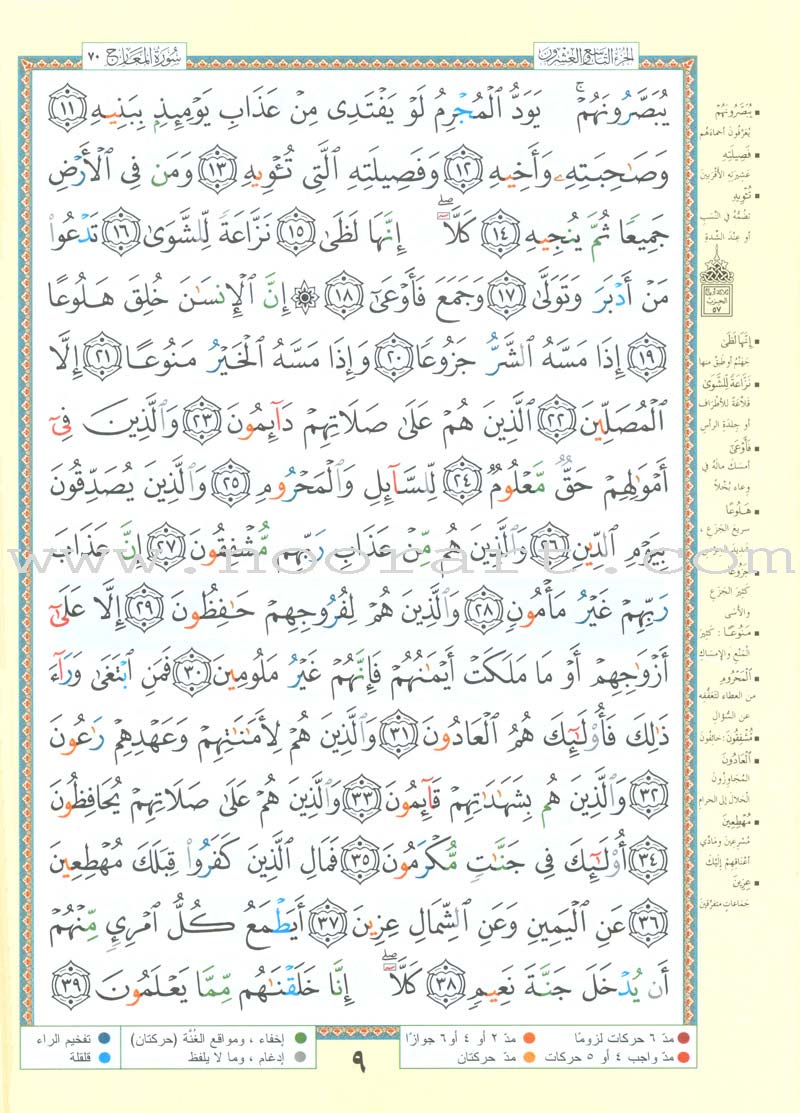 سُورَةُ المَعَارِج ٧٠
الجزء التاسع والعشرون
يُبَصَّرُونَهُمْ ۚ يَوَدُّ ٱلْمُجْرِمُ لَوْ يَفْتَدِى مِنْ عَذَابِ يَوْمِئِذٍۭ بِبَنِيهِ ١١
وَصَٰحِبَتِهِۦ وَأَخِيهِ ١٢ وَفَصِيلَتِهِ ٱلَّتِى تُـْٔوِيهِ ١٣ وَمَن فِى ٱلْأَرْضِ
جَمِيعًا ثُمَّ يُنجِيهِ ١٤ كَلَّآ ۖ إِنَّهَا لَظَىٰ ١٥ نَزَّاعَةً لِّلشَّوَىٰ ١٦ تَدْعُوا۟
مَنْ أَدْبَرَ وَتَوَلَّىٰ ١٧ وَجَمَعَ فَأَوْعَىٰٓ ١٨ ۞ إِنَّ ٱلْإِنسَٰنَ خُلِقَ هَلُوعًا
١٩ إِذَا مَسَّهُ ٱلشَّرُّ جَزُوعًا ٢٠ وَإِذَا مَسَّهُ ٱلْخَيْرُ مَنُوعًا ٢١ إِلَّا
ٱلْمُصَلِّينَ ٢٢ ٱلَّذِينَ هُمْ عَلَىٰ صَلَاتِهِمْ دَآئِمُونَ ٢٣ وَٱلَّذِينَ فِىٓ
أَمْوَٰلِهِمْ حَقٌّ مَّعْلُومٌ ٢٤ لِّلسَّآئِلِ وَٱلْمَحْرُومِ ٢٥ وَٱلَّذِينَ يُصَدِّقُونَ
بِيَوْمِ ٱلدِّينِ ٢٦ وَٱلَّذِينَ هُم مِّنْ عَذَابِ رَبِّهِم مُّشْفِقُونَ ٢٧ إِنَّ عَذَابَ
رَبِّهِمْ غَيْرُ مَأْمُونٍ ٢٨ وَٱلَّذِينَ هُمْ لِفُرُوجِهِمْ حَٰفِظُونَ ٢٩ إِلَّا عَلَىٰٓ
أَزْوَٰجِهِمْ أَوْ مَا مَلَكَتْ أَيْمَٰنُهُمْ فَإِنَّهُمْ غَيْرُ مَلُومِينَ ٣٠ فَمَنِ ٱبْتَغَىٰ وَرَآءَ
ذَٰلِكَ فَأُو۟لَٰٓئِكَ هُمُ ٱلْعَادُونَ ٣١ وَٱلَّذِينَ هُمْ لِأَمَٰنَٰتِهِمْ وَعَهْدِهِمْ رَٰعُونَ
٣٢ وَٱلَّذِينَ هُم بِشَهَٰدَٰتِهِمْ قَآئِمُونَ ٣٣ وَٱلَّذِينَ هُمْ عَلَىٰ صَلَاتِهِمْ يُحَافِظُونَ
٣٤ أُو۟لَٰٓئِكَ فِى جَنَّٰتٍ مُّكْرَمُونَ ٣٥ فَمَالِ ٱلَّذِينَ كَفَرُوا۟ قِبَلَكَ مُهْطِعِينَ
٣٦ عَنِ ٱلْيَمِينِ وَعَنِ ٱلشِّمَالِ عِزِينَ ٣٧ أَيَطْمَعُ كُلُّ ٱمْرِئٍ مِّنْهُمْ
أَن يُدْخَلَ جَنَّةَ نَعِيمٍ ٣٨ كَلَّآ ۖ إِنَّا خَلَقْنَٰهُم مِّمَّا يَعْلَمُونَ ٣٩
يُبَصَّرُونَهُمْ
يُعَرَّفُونَ أحماءَهُم
فَصِيلَتِهِ
عَشِيرَتِهِ الأقْرَبِينَ
تُـْٔوِيهِ
تَضُمُّهُ فِي النَّسَبِ
أو عِنْدَ الشِّدَّةِ
الحزب
٥٧
إِنَّهَا لَظَىٰ
جَهَنَّمُ أو طَبَقٌ منها
نَزَّاعَةً لِّلشَّوَىٰ
قَلَّاعَةً للأطْرَافِ
أو جِلدَةِ الرأسِ
فَأَوْعَىٰٓ
أمسَكَ مالَهُ في
وِعاء بُخْلاً
هَلُوعًا
سريعَ الجَزَعِ،
جَزُوعًا
كثيرَ الجَزَعِ
والأسَى
مَنُوعًا: كثيرَ
المَنْعِ والإمساكِ
ٱلْمَحْرُومِ
من العطاء لتعَفُّفِهِ
عن السُّؤالِ
مُّشْفِقُونَ: خائِفُونَ
ٱلْعَادُونَ
المُجَاوِزُونَ
الْحَلالَ إلى الحرامِ
مُهْطِعِينَ
مُسْرِعِينَ ومادِّي
أعْنَاقِهِمْ إِلَيْكَ
عِزِينَ
جَمَاعَاتٍ متفرِّقينَ
www.noorart.com
مدّ ٦ حركات لزومًا
مدّ ٢ أو ٤ أو ٦ جوازًا
إخفاء، ومواقع الغُنَّة (حركتان)
تفخيم الراء
مدّ واجب ٤ أو ٥ حركات
مدّ حركتان
إدغام، وما لا يلفظ
قلقلة
٩